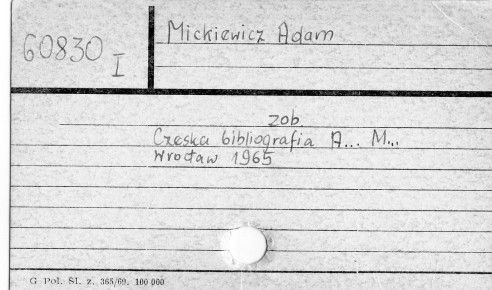 Mickiewicz Adam
60830 I
zob.
Czeska bibliografia A... M...
Wrocław 1965
G Pol. Śl. z. 365/69. 100 000